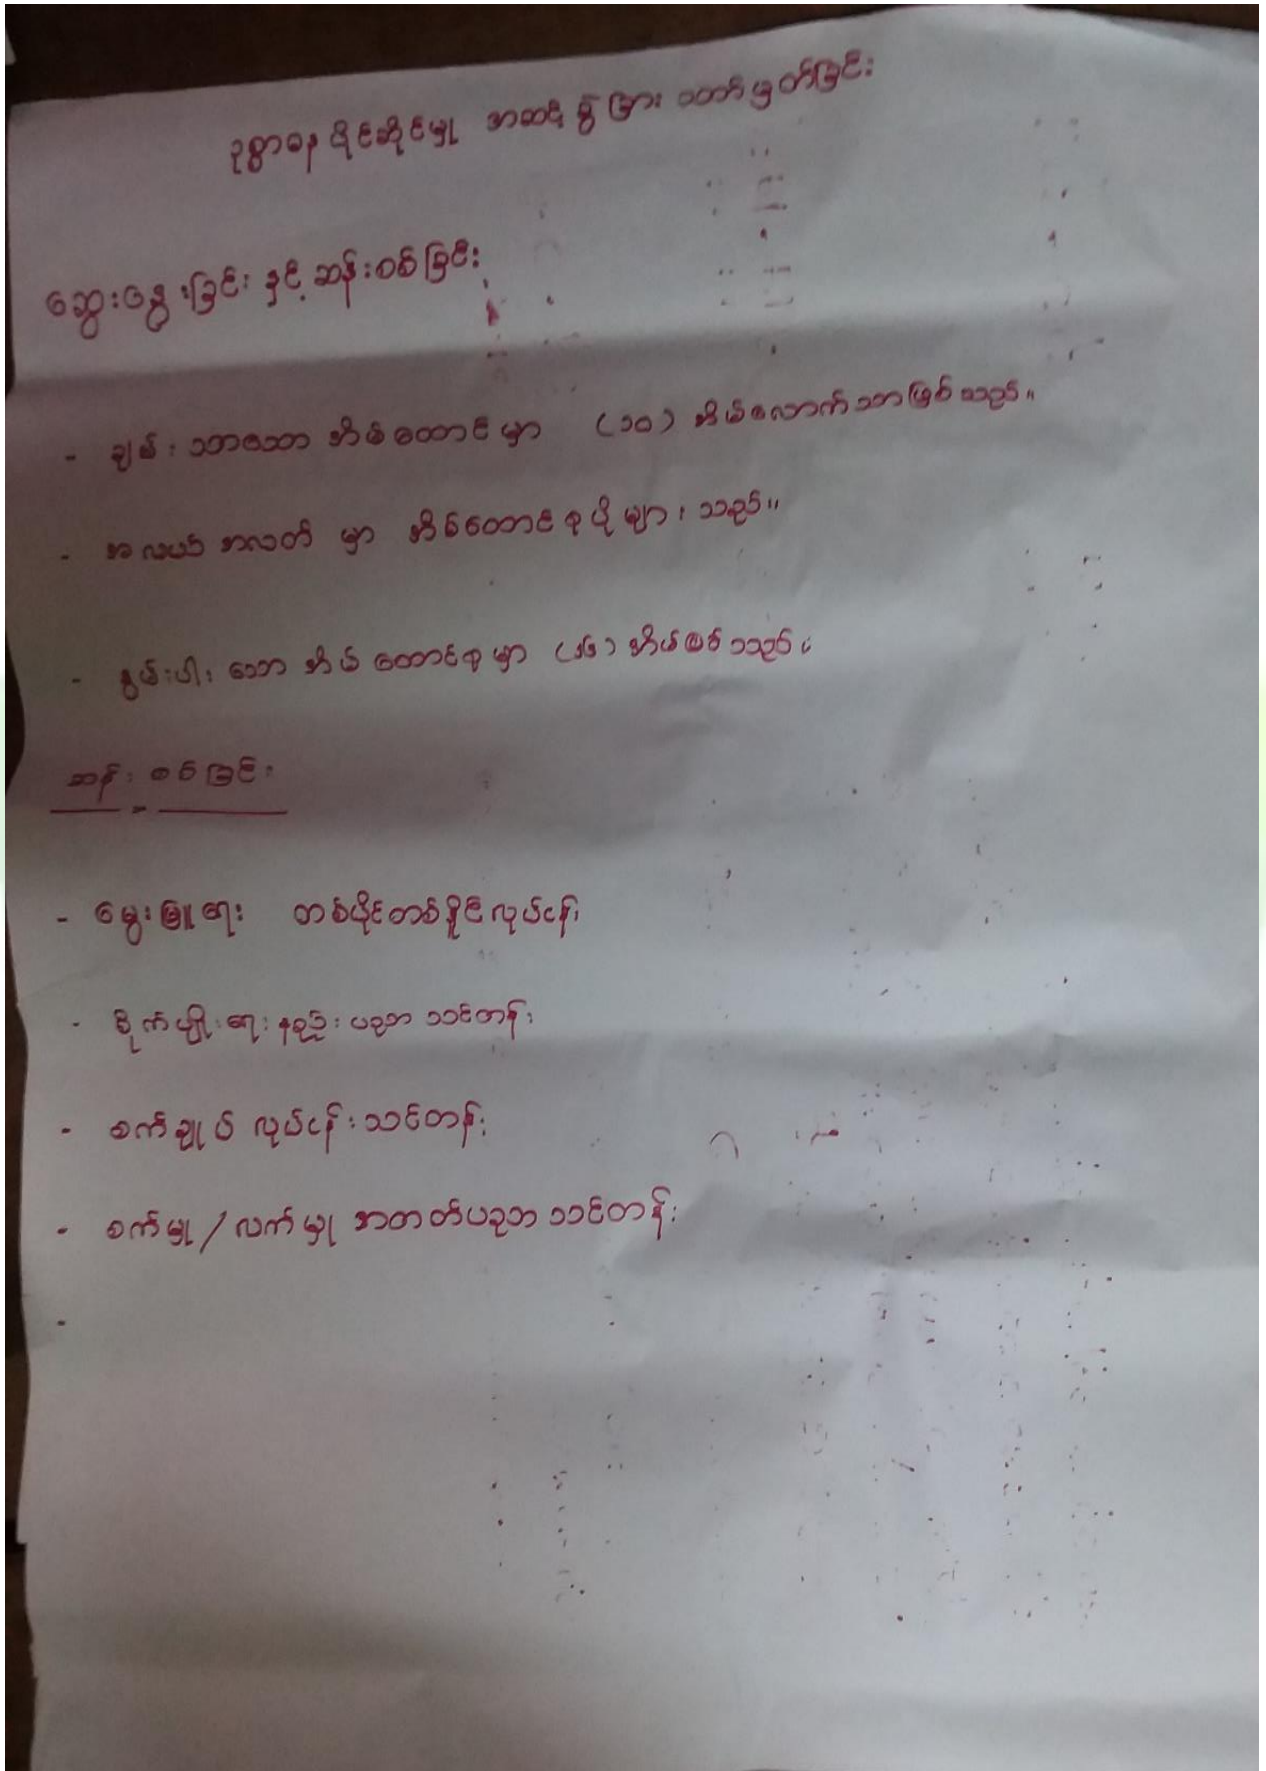 ဥစ္စာဓန ပိုင်ဆိုင်မှု အဆင့် ခွဲ ခြား သတ်မှတ်ခြင်း
ဆွေးနွေးခြင်း နှင့် ဆန်းစစ်ခြင်း
- ချမ်းသာသော အိမ်ထောင် မှာ (၁၀) အိမ်လောက်သာဖြစ်သည်။
- အလယ် အလတ် မှာ အိမ်ထောင်စု ပိုများသည်။
- နွမ်းပါးသော အိမ်ထောင်စုမှာ (၁၆) အိမ်ဖြစ်သည်။
ဆန်းစစ်ခြင်း
- မွေးမြူရေး တစ်ပိုင်တစ်နိုင်လုပ်ငန်း
- စိုက်ပျိုးရေးနည်းပညာ သင်တန်း
- စက်ချုပ် လုပ်ငန်းသင်တန်း
- စက်မှု / လက်မှု အတတ်ပညာသင်တန်း
-